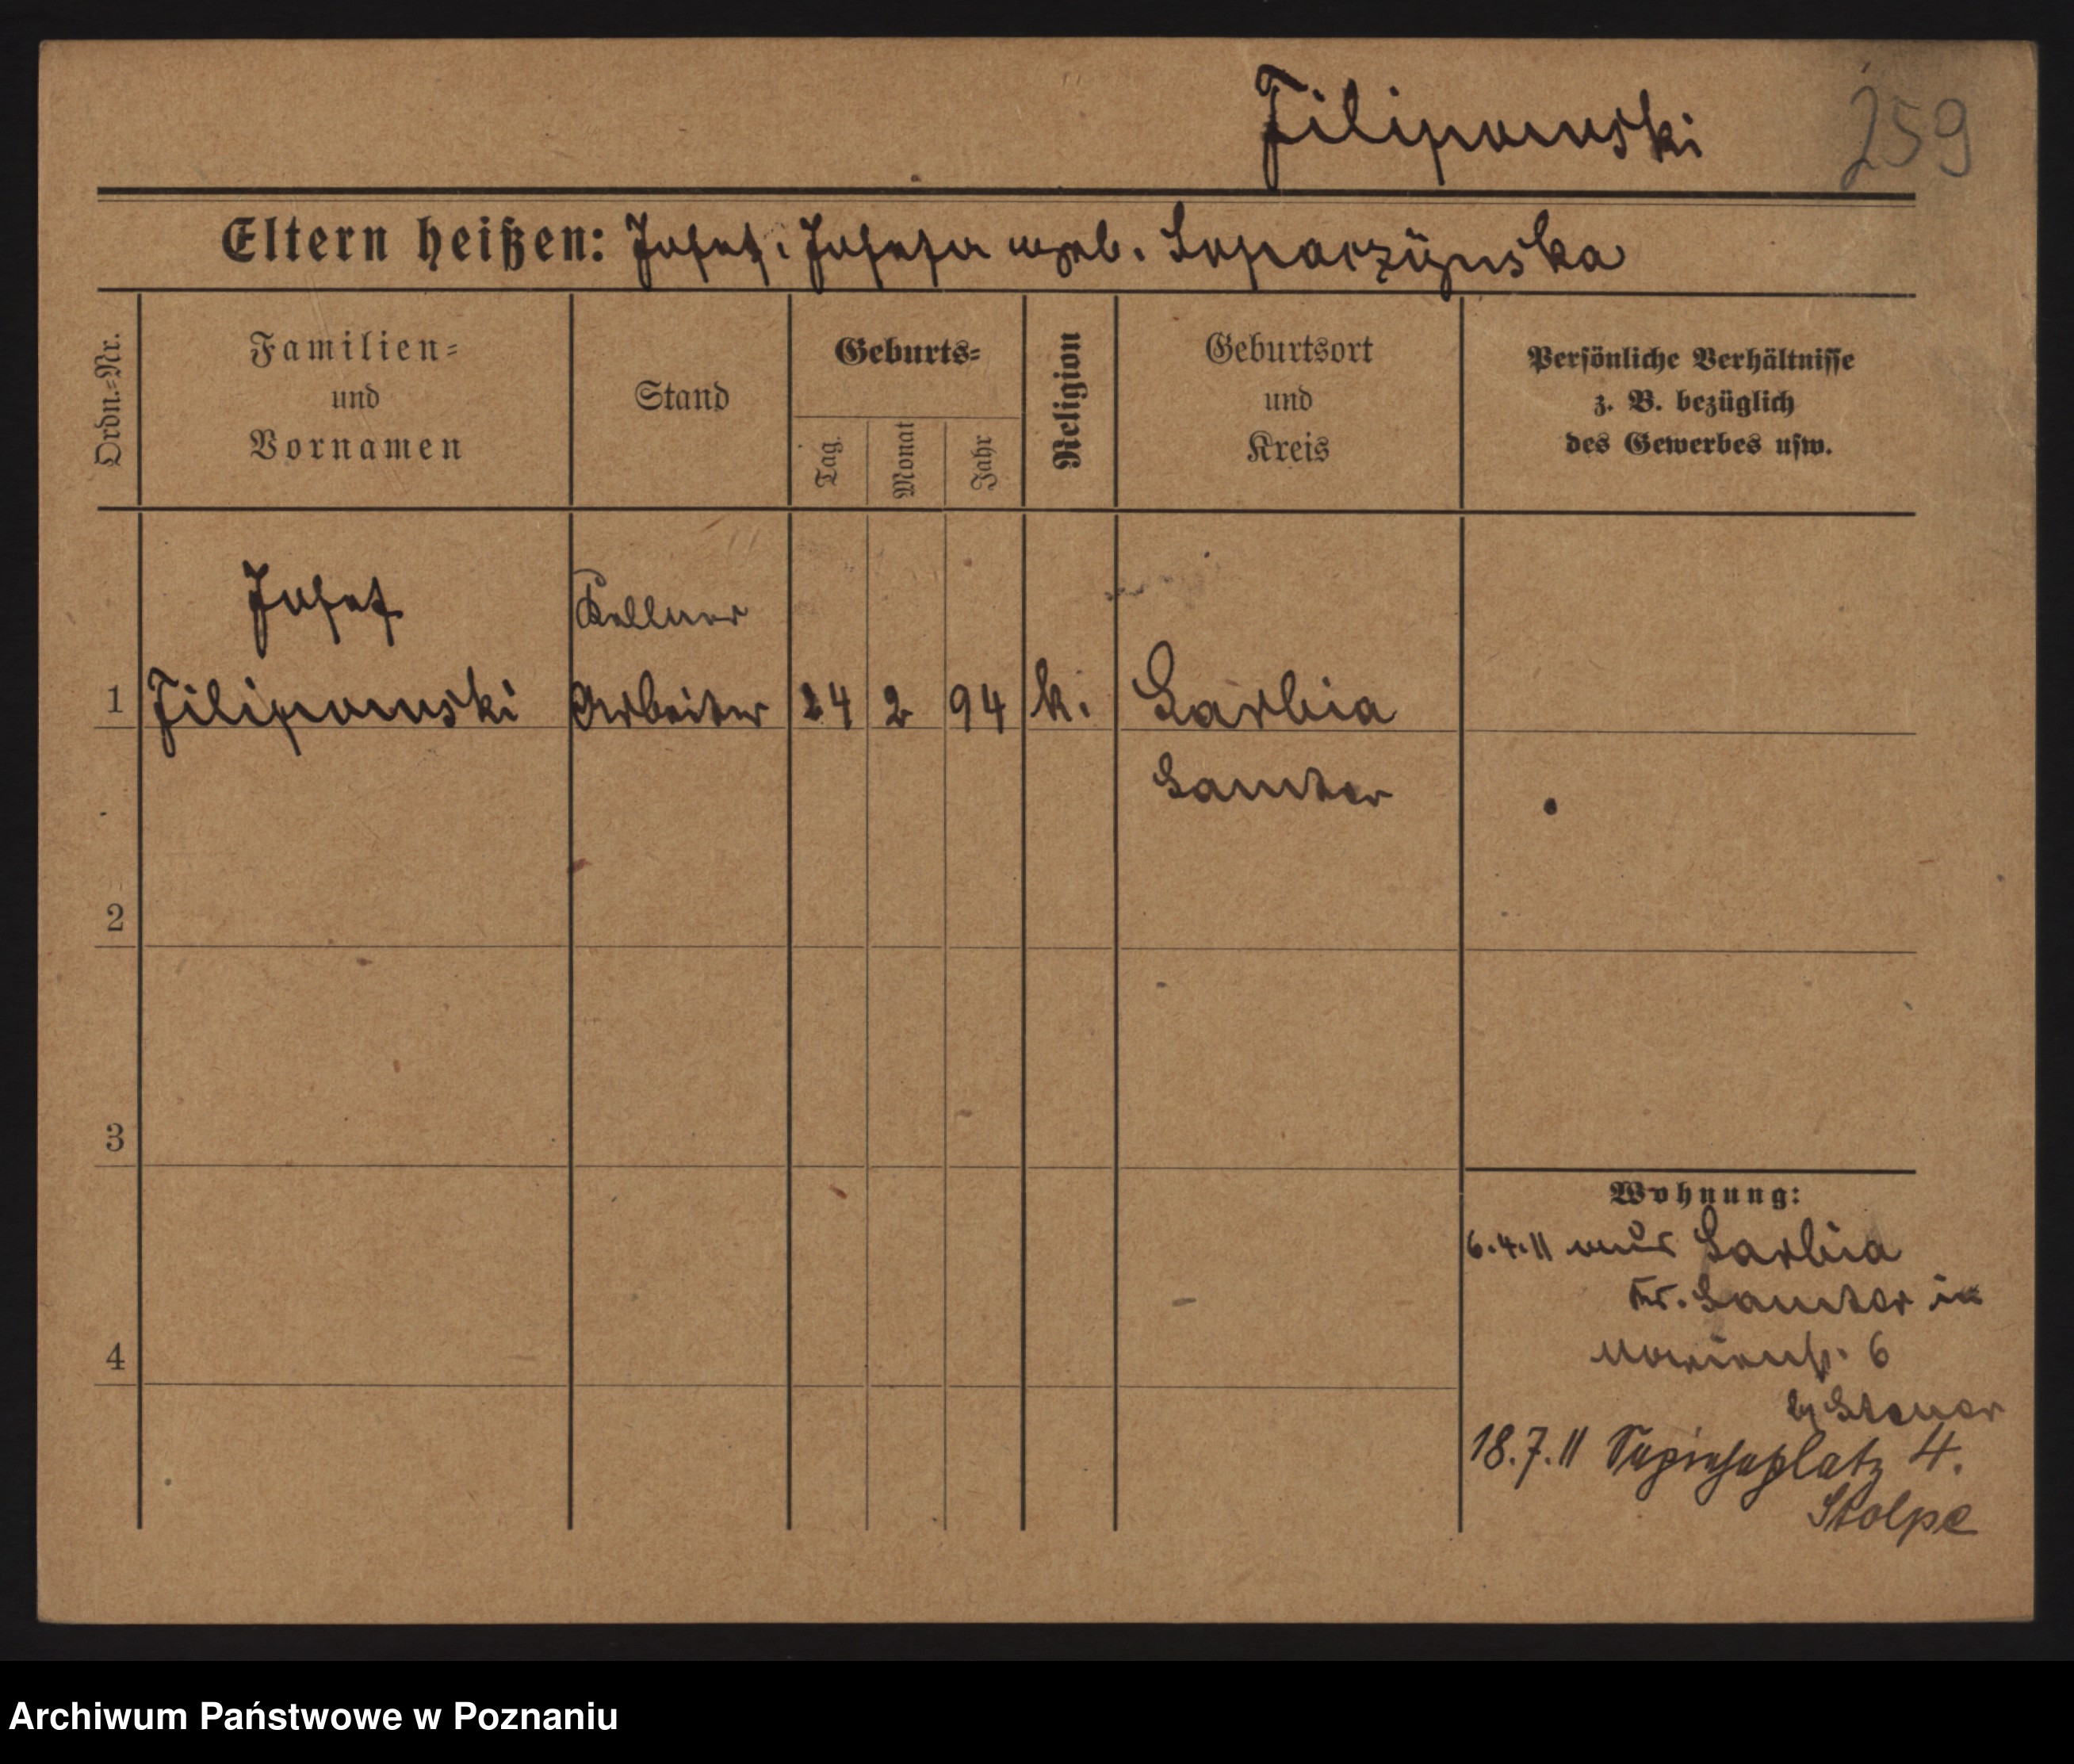 Filipowski 259
Eltern heißen: Josef. Josefa geb. Loparzÿnska
Ordn.=Nr.
Familien=
und
Vornamen
Stand
Geburts=
Tag.
Monat
Jahr
Religion
Geburtsort
und
Kreis
Persönliche Verhältnisse
z. B. bezüglich
des Gewerbes usw.
Josef Kellner
1 Filipowski Arbeiter 24 2 94 k. Sarbia
Samter
2
3
4
Wohnung:
6.4.11 aus Sarbia
Kr. Samter in
6
18.7.11 Sapiehaplatz 4.
Stolpe
Archiwum Państwowe w Poznaniu